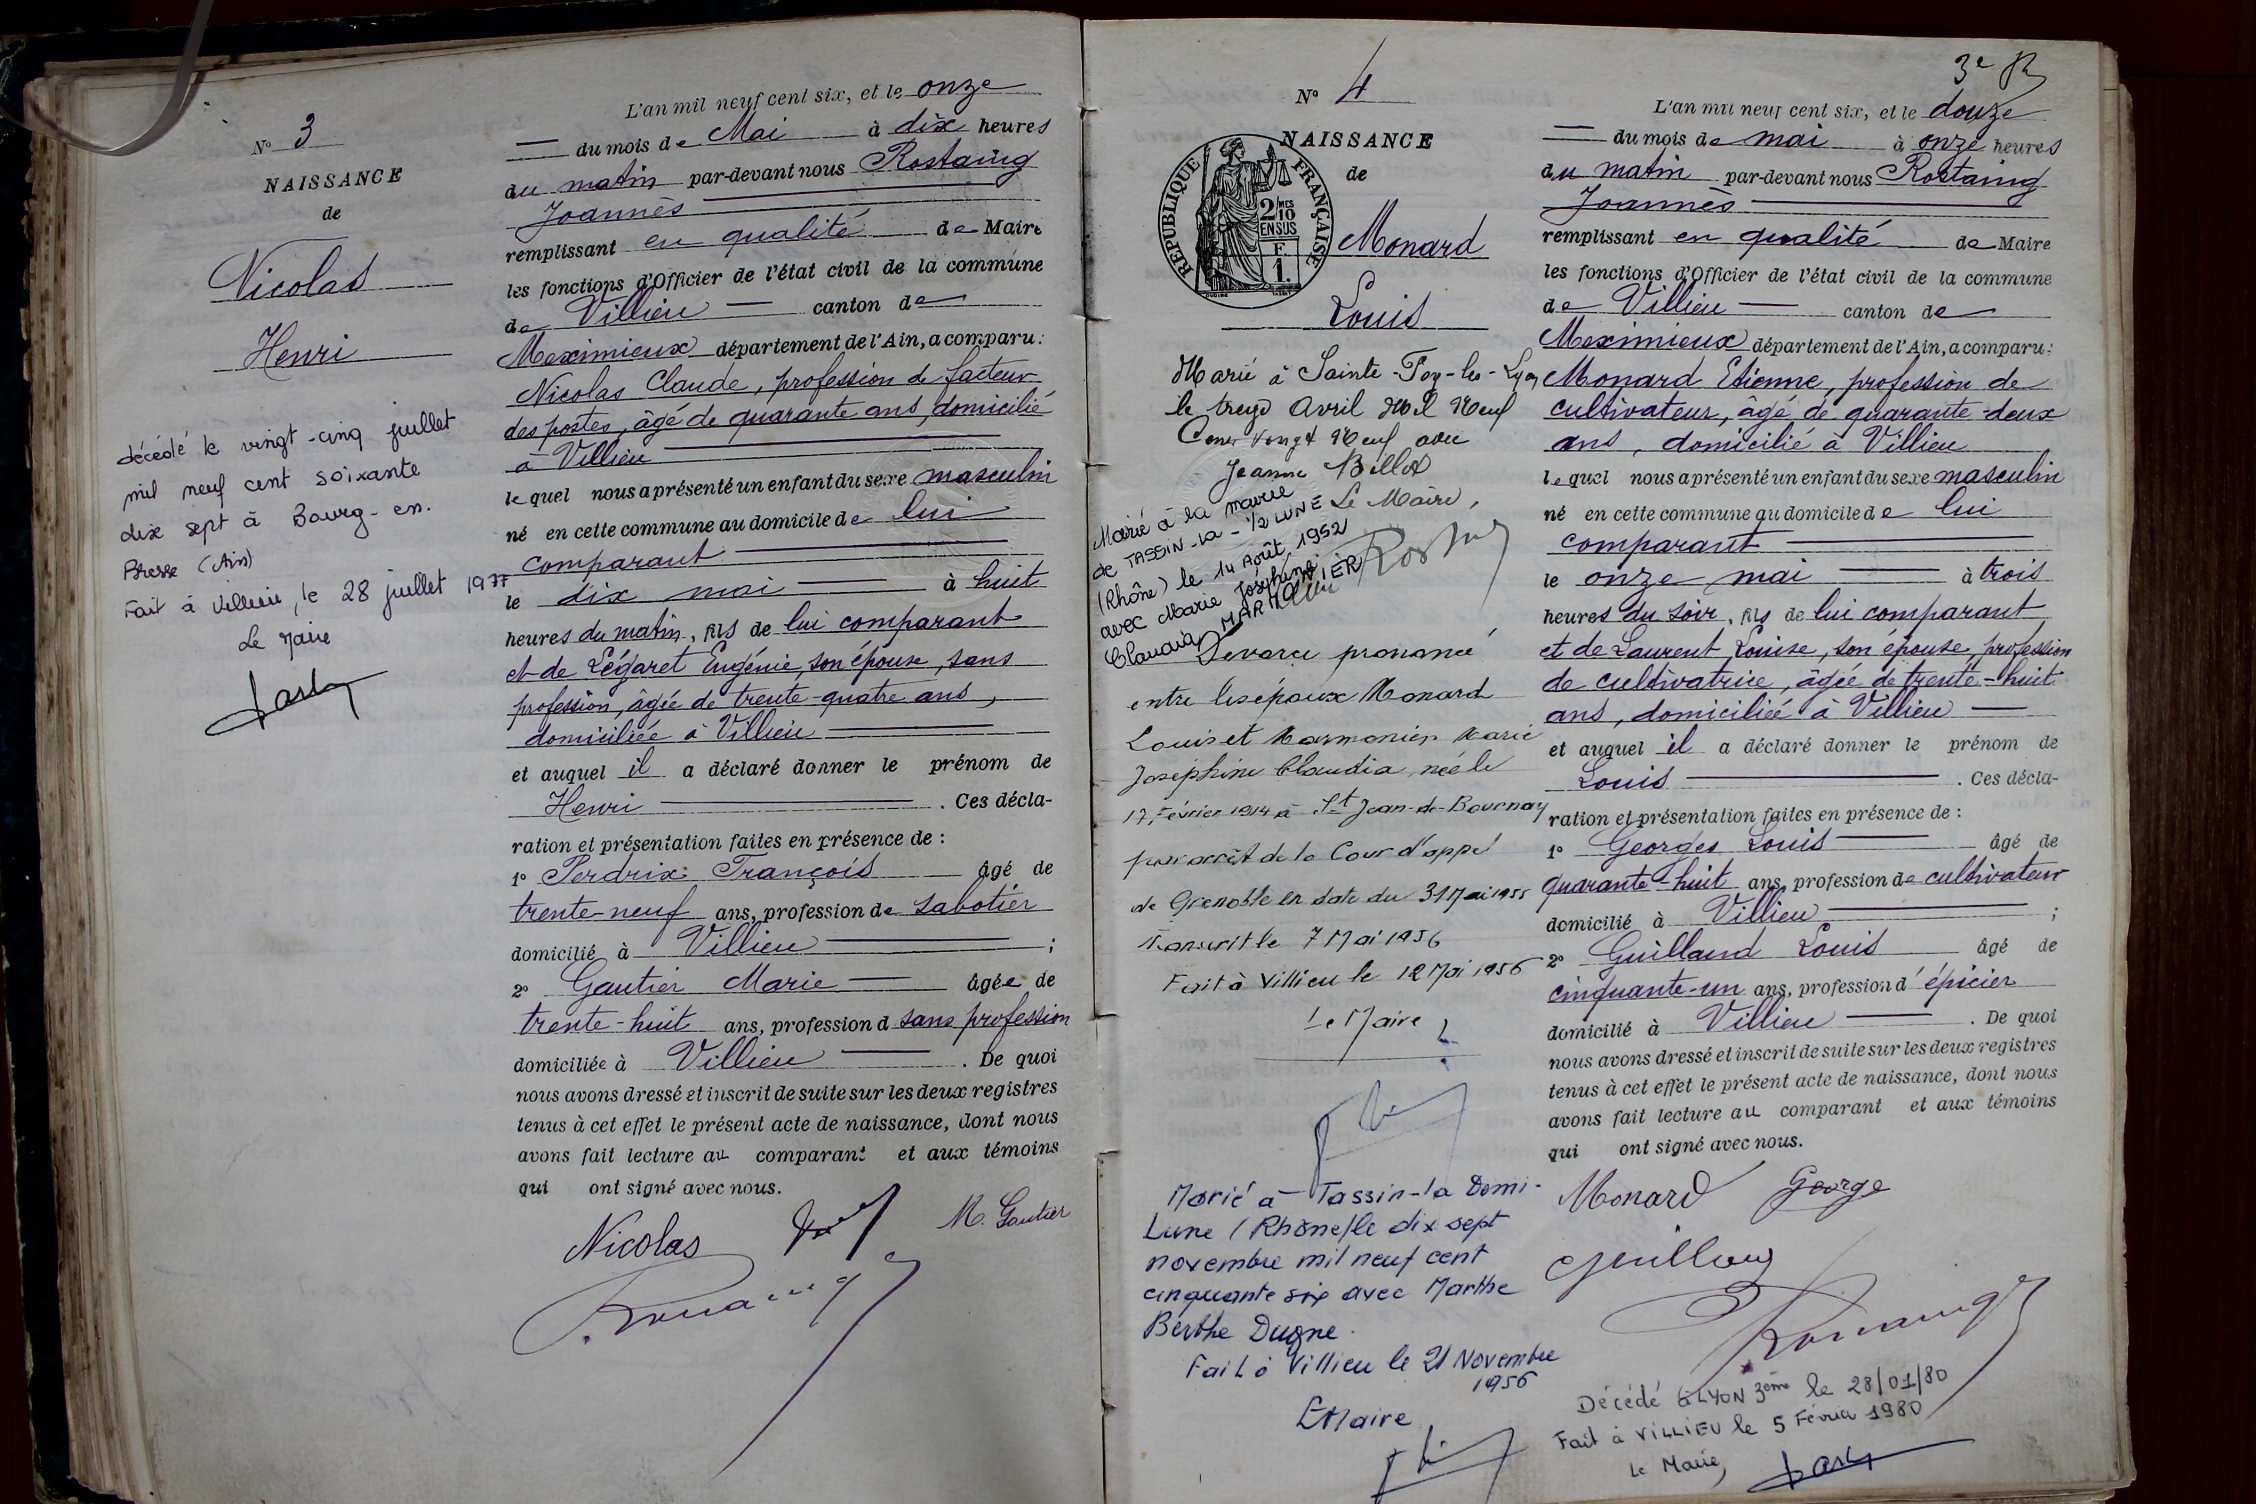 N° 3
NAISSANCE
de
Nicolas
Henri
décédé le vingt-cinq juillet
mil neuf cent soixante
dix sept à Bourg-en-
Bresse (Ain)
Fait à Villieu, le 28 juillet 1977
Le Maire
L'an mil neuf cent six, et le onze
du mois de Mai à dix heures
du matin par-devant nous Rostaing
Joannès
remplissant en qualité de Maire
les fonctions d'Officier de l'état civil de la commune
de Villieu canton de
Meximieux département de l'Ain, a comparu :
Nicolas Claude, profession de facteur
des postes, âgé de quarante ans, domicilié
à Villieu
lequel nous a présenté un enfant du sexe masculin
né en cette commune au domicile de lui
comparant
le dix mai à huit
heures du matin, fils de lui comparant
et de Légaret Eugénie, son épouse, sans
profession, âgée de trente-quatre ans,
domiciliée à Villieu
et auquel il a déclaré donner le prénom de
Henri . Ces décla-
ration et présentation faites en présence de :
1° Perdrix François âgé de
trente-neuf ans, profession de sabotier
domicilié à Villieu ;
2° Gautier Marie âgée de
trente-huit ans, profession d sans profession
domiciliée à Villieu . De quoi
nous avons dressé et inscrit de suite sur les deux registres
tenus à cet effet le présent acte de naissance, dont nous
avons fait lecture au comparant et aux témoins
qui ont signé avec nous.
Nicolas M. Gautier
Rostaing
N° 4
NAISSANCE
de
REPUBLIQUE FRANÇAISE
2/MES
10
EN SUS
F.
1.
Monard
Louis
Marié à Sainte-Foy-les-Lyon
le treize Avril Mil Neuf
Cent Vingt Neuf avec
Jeanne Billot
Le Maire,
Marié à la mairie
de TASSIN-la-1/2 LUNE
(Rhône) le 14 Août 1952
avec Marie Joséphine
Claudia
Divorce prononcé
entre les époux Monard
Louis et Marmonier Marie
Joséphine Claudia, née le
17 Février 1914 à St Jean-de-Bournay
par arrêt de la Cour d'appel
de Grenoble en date du 31 Mai 1955
Transcrit le 7 Mai 1956
Fait à Villieu le 12 Mai 1956
Le Maire
Marié à Tassin-la Demi-
Lune (Rhône) le dix sept
novembre mil neuf cent
cinquante six avec Marthe
Berthe Dugne.
Fait à Villieu le 21 Novembre
1956
L Maire
3e
L'an mil neuf cent six, et le douze
du mois de mai à onze heures
du matin par-devant nous Rostaing
Joannès
remplissant en qualité de Maire
les fonctions d'Officier de l'état civil de la commune
de Villieu canton de
Meximieux département de l'Ain, a comparu :
Monard Etienne, profession de
cultivateur, âgé de quarante-deux
ans, domicilié à Villieu
lequel nous a présenté un enfant du sexe masculin
né en cette commune au domicile de lui
comparant
le onze mai à trois
heures du soir, fils de lui comparant
et de Laurent Louise, son épouse, profession
de cultivatrice, âgée de trente-huit
ans, domiciliée à Villieu
et auquel il a déclaré donner le prénom de
Louis . Ces décla-
ration et présentation faites en présence de :
1° Georges Louis âgé de
quarante-huit ans, profession de cultivateur
domicilié à Villieu ;
2° Guilland Louis âgé de
cinquante-un ans, profession d'épicier
domicilié à Villieu . De quoi
nous avons dressé et inscrit de suite sur les deux registres
tenus à cet effet le présent acte de naissance, dont nous
avons fait lecture au comparant et aux témoins
qui ont signé avec nous.
Monard George
Guilland
Rostaing
Décédé à LYON 3ème le 28/01/80
Fait à VILLIEU le 5 Février 1980
Le Maire,